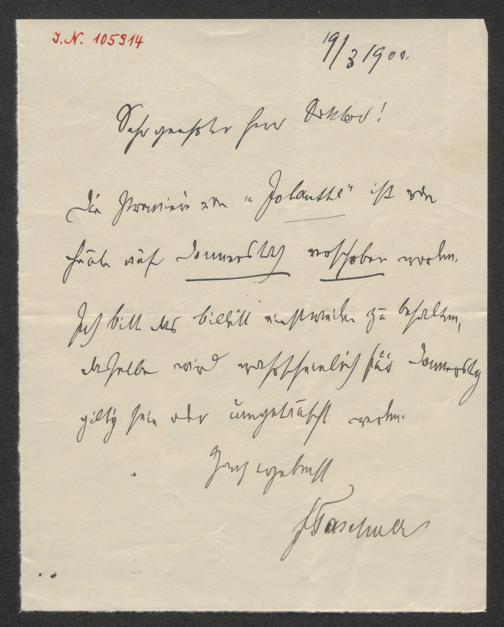 I.N. 105914
19/3 1900.
Sehr geehrter Herr Doktor!
Die Premiere von "Jolanthe" ist von
heute auf Donnerstag verschoben worden.
Ich bitte das Billett einstweilen zu behalten,
dasselbe wird wahrscheinlich für Donnerstag
giltig sein oder umgetauscht werden.
Ganz ergebenst